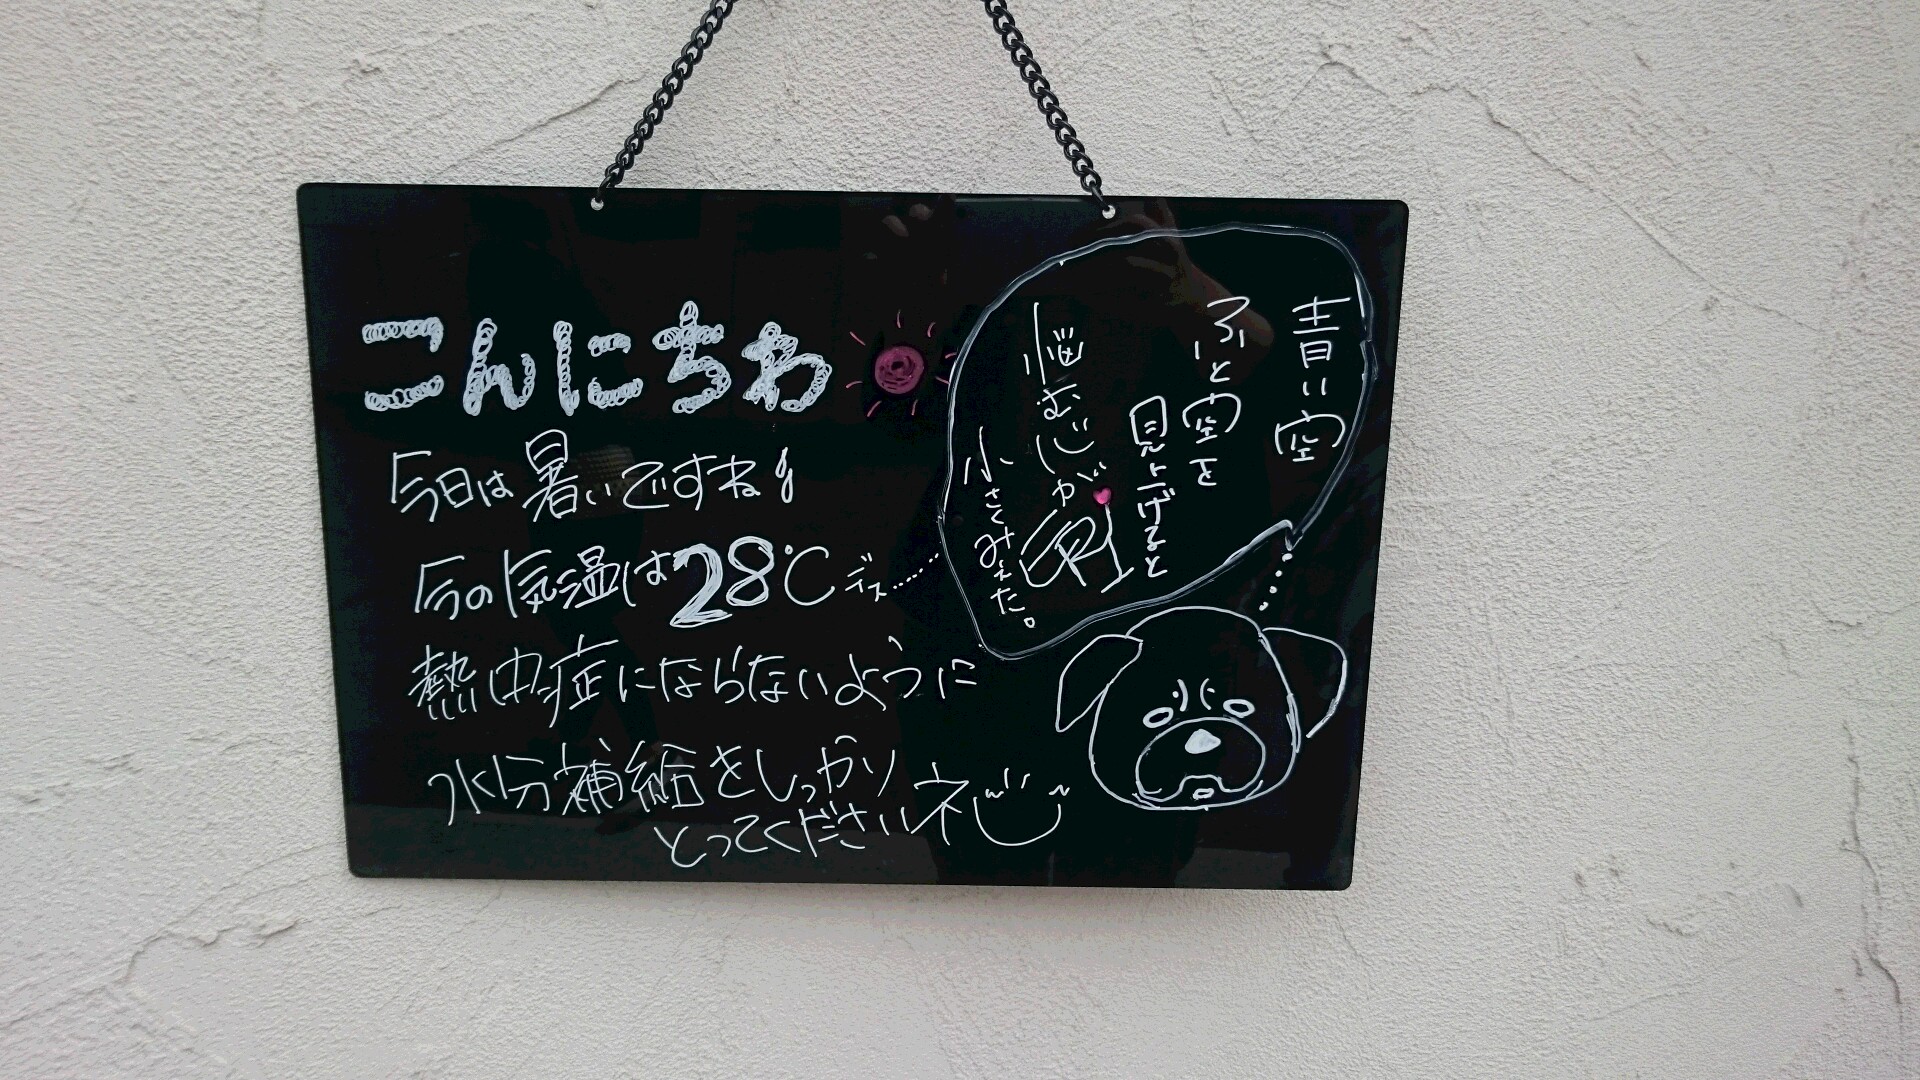 こんにちわ
今日は暑いですね!
今の気温は28℃デス……
熱中症にならないように
水分補給をしっかり
とってくださいネ
青い空
ふと空を
見上げると
悩むじが
小さくみえた。